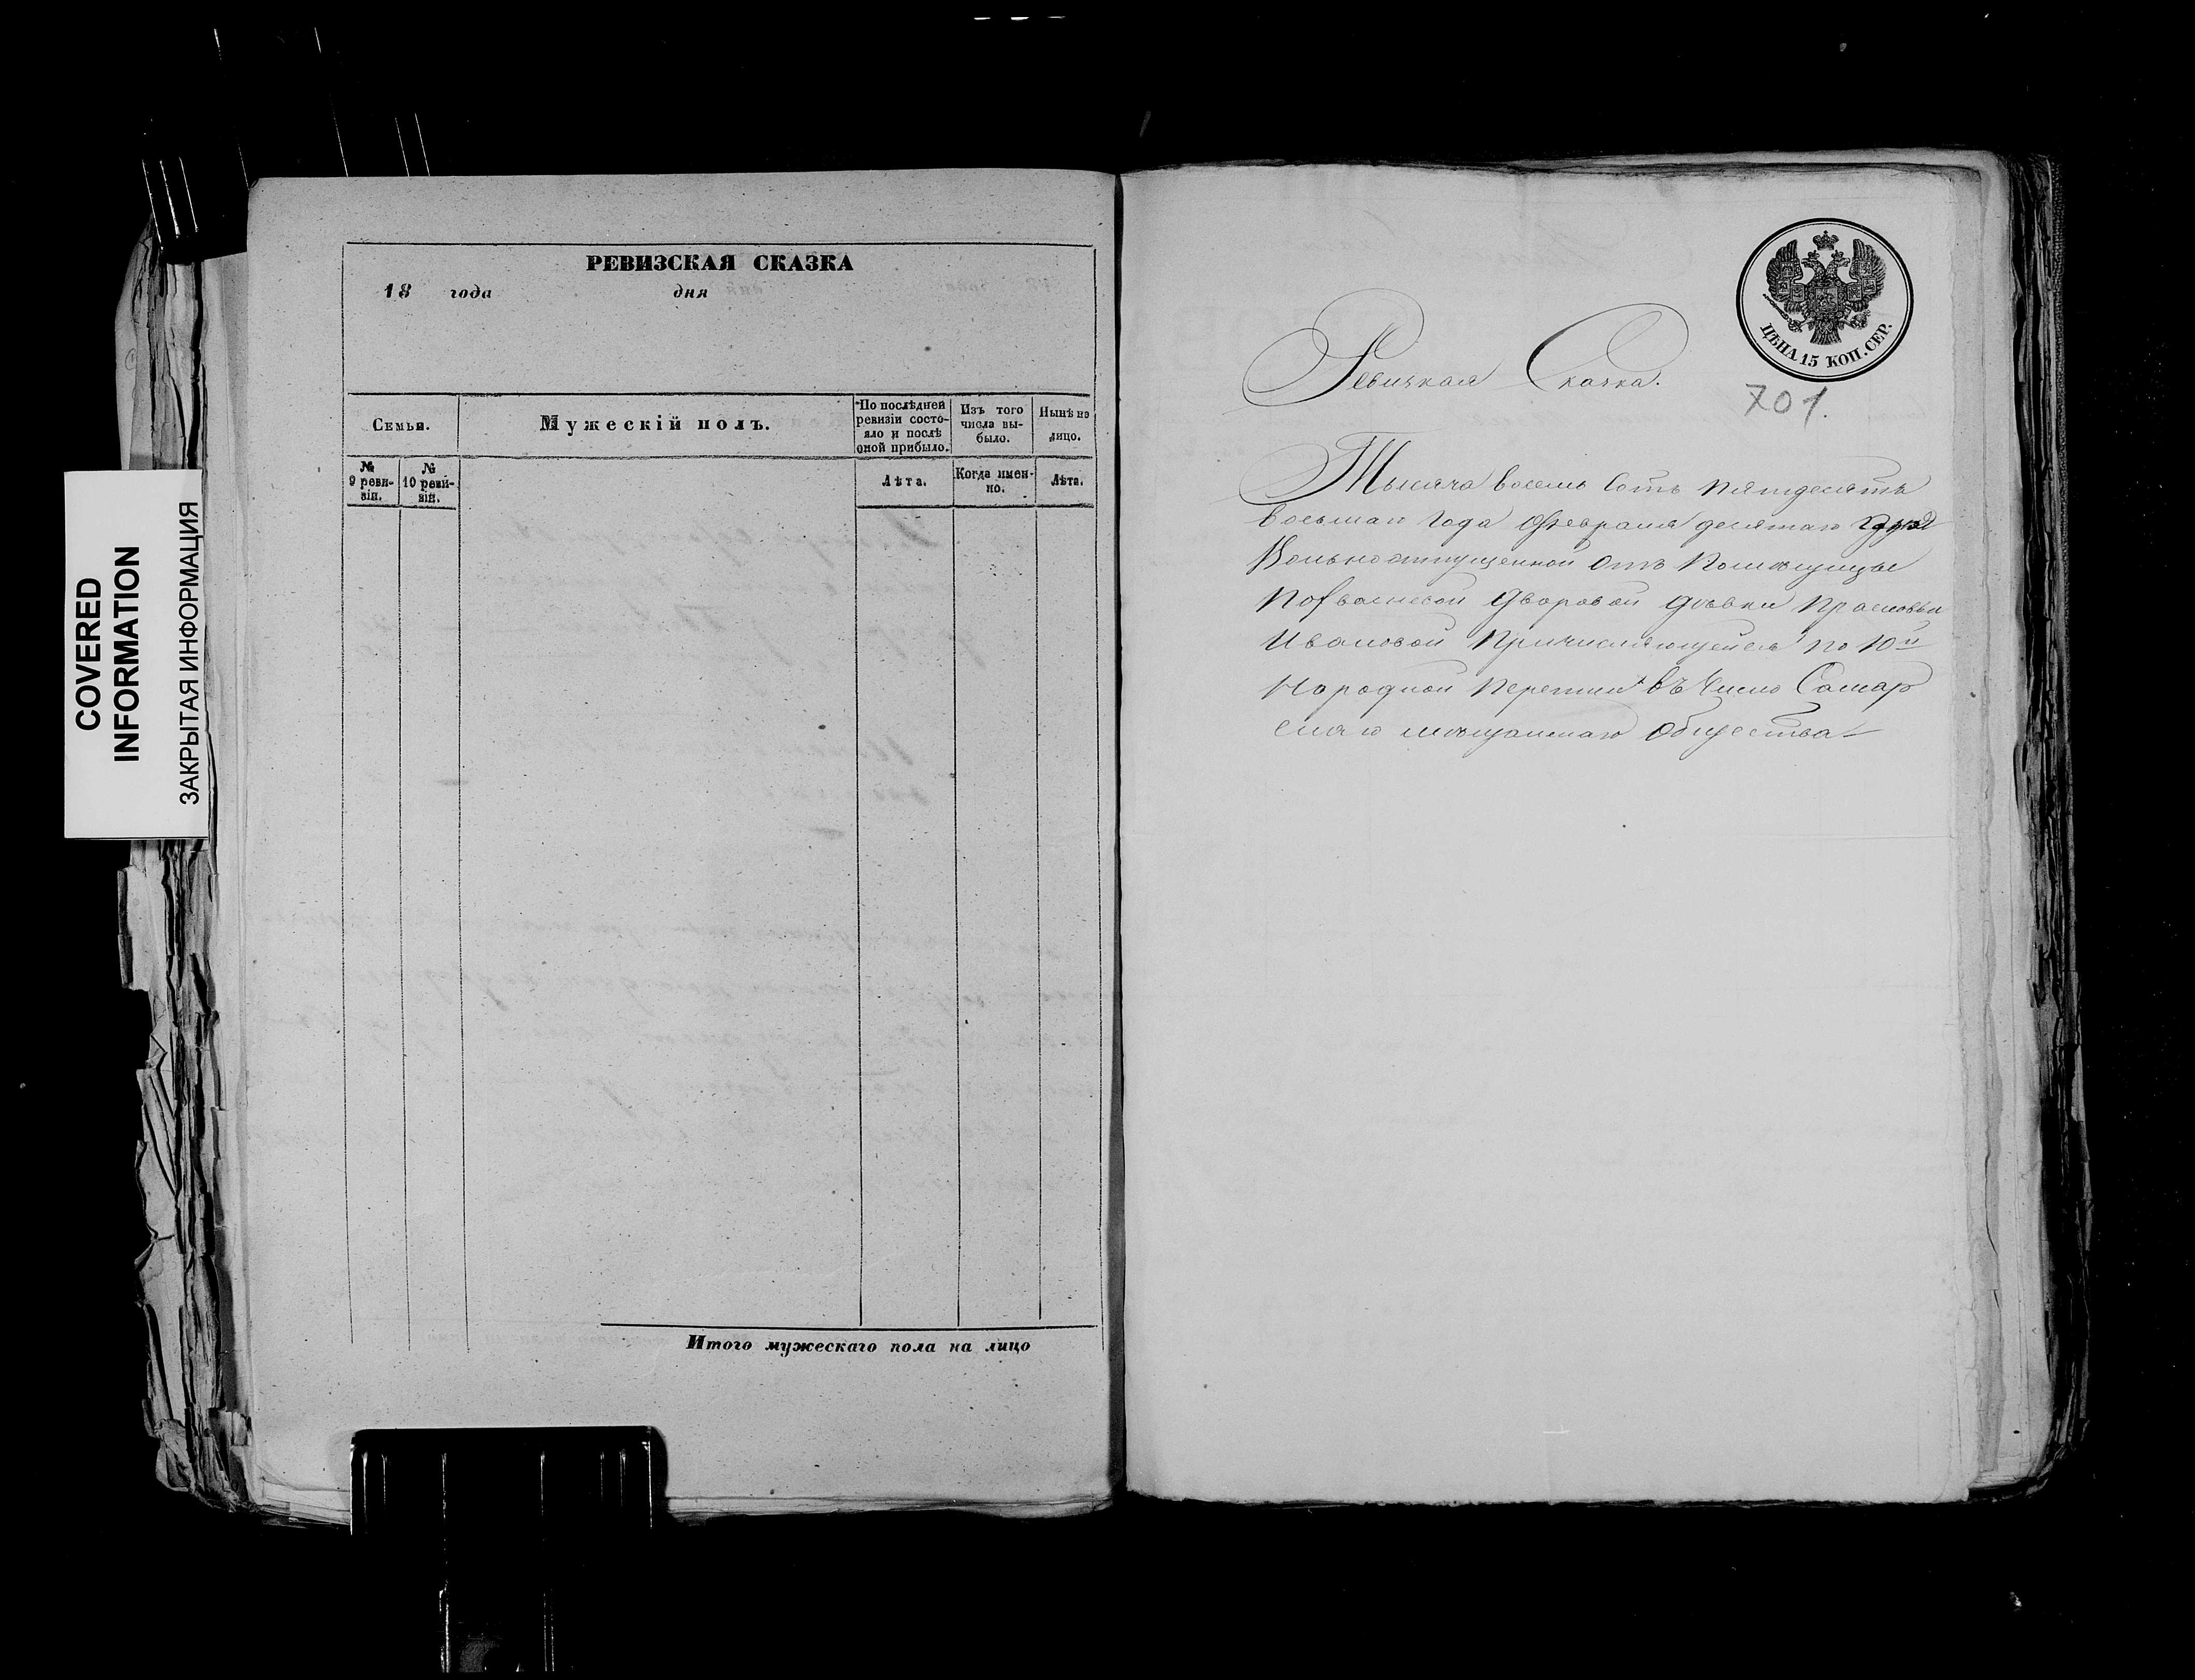 COVERED
INFORMATION
ЗАКРЫТАЯ ИНФОРМАЦИЯ
РЕВИЗСКАЯ СКАЗКА
18 года дня
Семьи.
Мужескій полъ.
По послѣдней
ревизіи состо-
яло и послѣ
оной прибыло.
Изъ того
числа вы-
было.
Нынѣ на
лицо.
№
9 реви-
зіи.
№
10 реви-
зіи.
Лѣта.
Когда имен-
но.
Лѣта.
Итого мужескаго пола на лицо
ЦѢНА 15 КОП. СЕР.
701.
Ревижкая Скажка.
Тысяча восемь сотъ пятдесятъ
восьмаго года Февраля десятаго дня
Вольноотпущенной отъ Помѣщицы
дворовой дѣвки Прасковьи
Ивановой Причисляющейся по 10й
Народной Переписи въ Число Самар
скаго мѣщанскаго Общества